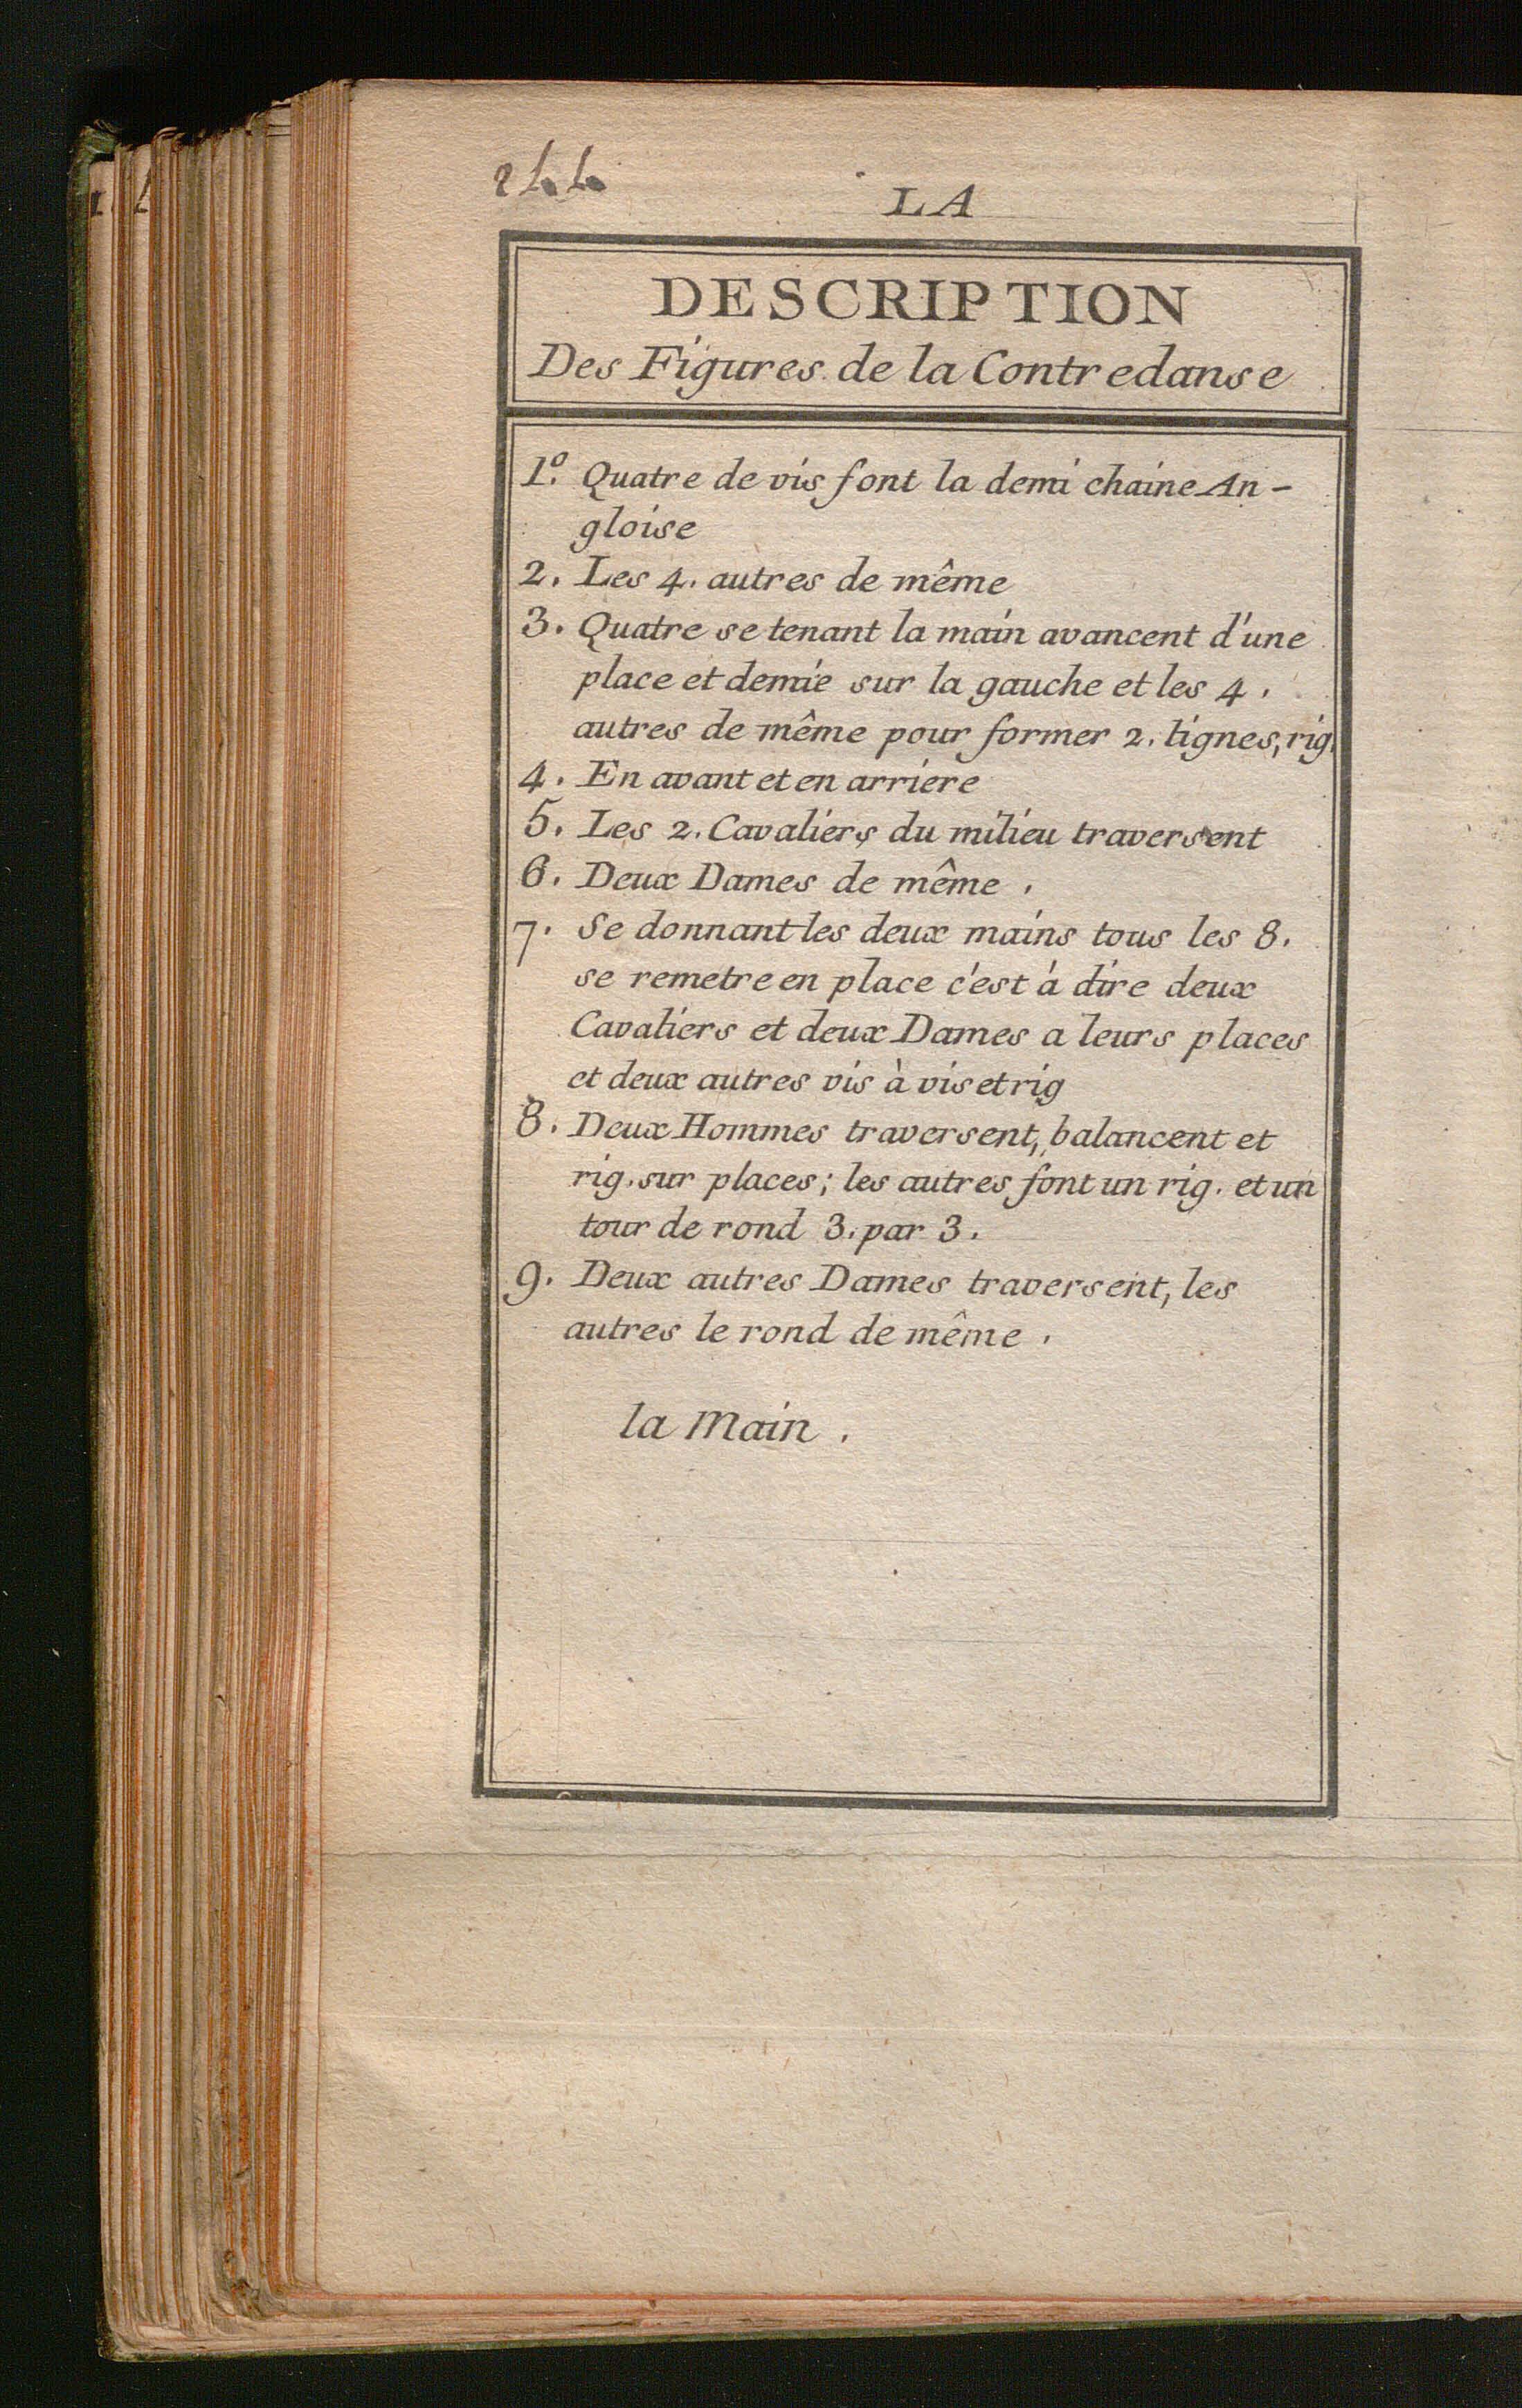 244
LA
DESCRIPTION
Des Figures de la Contredanse
1.º Quatre de vis font la demi chaine An-
gloise
2. Les 4. autres de même
3. Quatre se tenant la main avancent d'une
place et demie sur la gauche et les 4.
autres de même pour former 2. lignes, rig.
4. En avant et en arriere
5. Les 2. Cavaliers du milieu traversent
6. Deux Dames de même.
7. Se donnant les deux mains tous les 8.
se remetre en place c'est à dire deux
Cavaliers et deux Dames a leurs places
et deux autres vis à vis et rig
8. Deux Hommes traversent, balancent et
rig. sur places; les autres font un rig. et un
tour de rond 3. par 3.
9. Deux autres Dames traversent, les
autres le rond de même.
la Main.